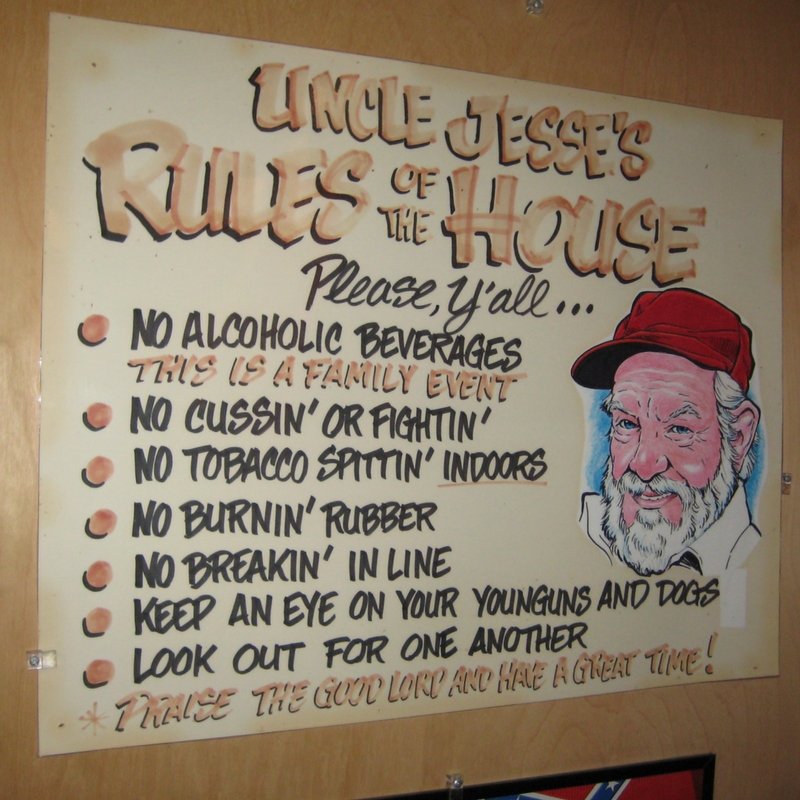 UNCLE JESSE'S
RULES OF THE HOUSE
Please, Y'all...
NO ALCOHOLIC BEVERAGES
THIS IS A FAMILY EVENT
NO CUSSIN' OR FIGHTIN'
NO TOBACCO SPITTIN' INDOORS
NO BURNIN' RUBBER
NO BREAKIN' IN LINE
KEEP AN EYE ON YOUR YOUNGUNS AND DOGS
LOOK OUT FOR ONE ANOTHER
* PRAISE THE GOOD LORD AND HAVE A GREAT TIME!